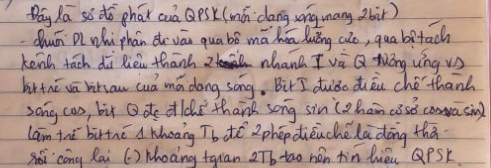 Đây là sơ đồ phát của QPSK (mỗi dạng sóng mang 2bit)
- chuỗi DL nhị phân đi vào qua bộ mã hóa lưỡng cực, qua bộ tách
kênh tách dữ liệu thành 2 nhánh I và Q tương ứng vs
bit trẻ và bit sau của mã dạng sóng. Bit I được điều chế thành
sóng cos, bit Q đc đ/chế thành sóng sin (2 hàm cơ sở cos và sin)
làm trễ bit trẻ 1 khoảng Tb để 2 phép điều chế là đồng thời
rồi cộng lại (-) khoảng tgian 2Tb tạo nên tín hiệu QPSK